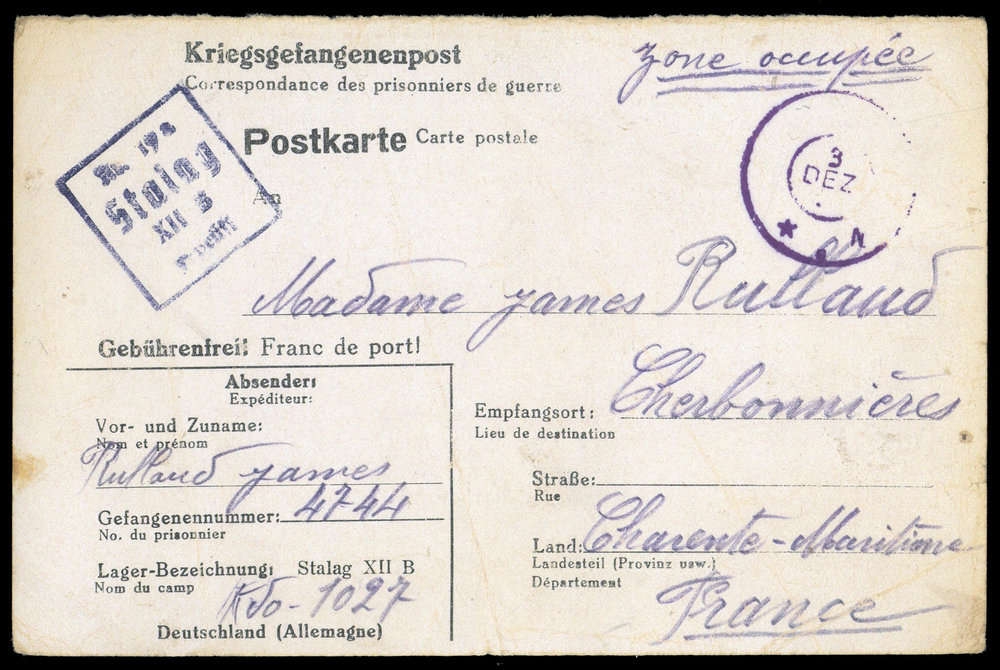 Kriegsgefangenenpost
zone occupée
Correspondance des prisonniers de guerre
Postkarte Carte postale
Nr. 19a
Stalag
XII B
Geprüft
3
DEZ
An
Madame James Rulland
Gebührenfrei! Franc de port!
Absender:
Expéditeur:
Vor- und Zuname:
Nom et prénom
Rulland James
Gefangenennummer: 4744
No. du prisonnier
Lager-Bezeichnung: Stalag XII B
Nom du camp
Kdo-1027
Deutschland (Allemagne)
Empfangsort: Cherbonnières
Lieu de destination
Straße:
Rue
Land: Charente-Maritime
Landesteil (Provinz usw.)
Département
France